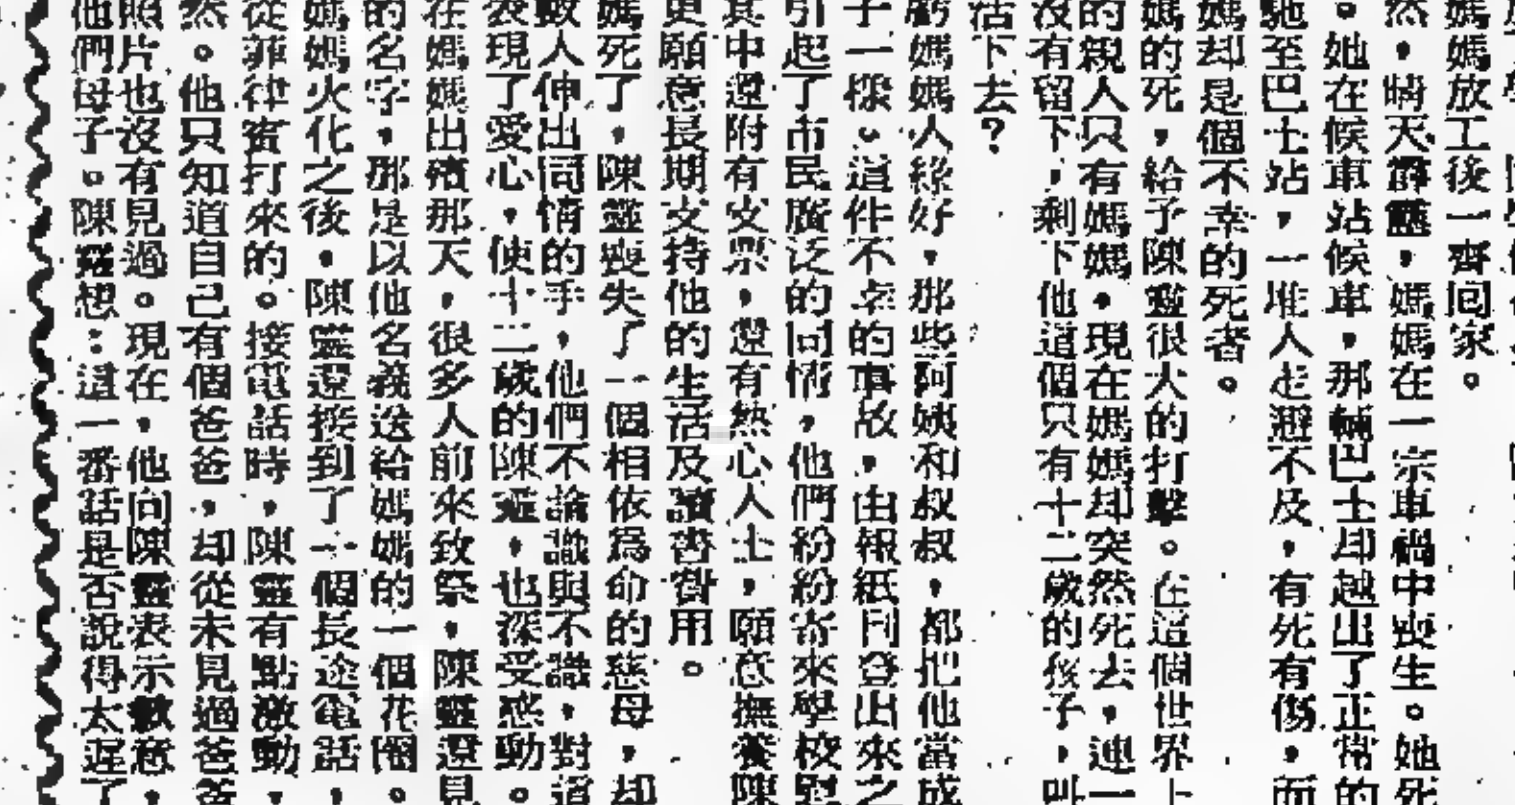 媽媽放工後一齊囘家。
然，晴天霹靂，媽媽在一宗車禍中喪生。她死
。她在候車站候車，那輛巴士却越出了正常的
馳至巴士站，一堆人走避不及，有死有傷，而
媽却是個不幸的死者。
媽的死，給予陳靈很大的打擊。在這個世界上
的親人只有媽媽。現在媽媽却突然死去，連一
沒有留下，剩下他這個只有十二歲的孩子，叫
活下去？
虧媽媽人緣好，那些阿姨和叔叔，都把他當成
子一樣。這件不幸的事故，由報紙刊登出來之
引起了市民廣泛的同情，他們紛紛寄來學校慰
其中還附有支票，還有熱心人士，願意撫養陳
更願意長期支持他的生活及讀書費用。
媽死了，陳靈喪失了一個相依爲命的慈母，却
數人伸出同情的手，他們不論識與不識，對這
表現了愛心，使十二歲的陳靈，也深受感動。
在媽媽出殯那天，很多人前來致祭，陳靈還見
的名字，那是以他名義送給媽媽的一個花圈。
媽媽火化之後，陳靈還接到了一個長途電話，
從菲律賓打來的。接電話時，陳靈有點激動，
然。他只知道自己有個爸爸，却從未見過爸爸
照片也沒有見過。現在，他向陳靈表示歉意，
他們母子。陳靈想：這一番話是否說得太遲了